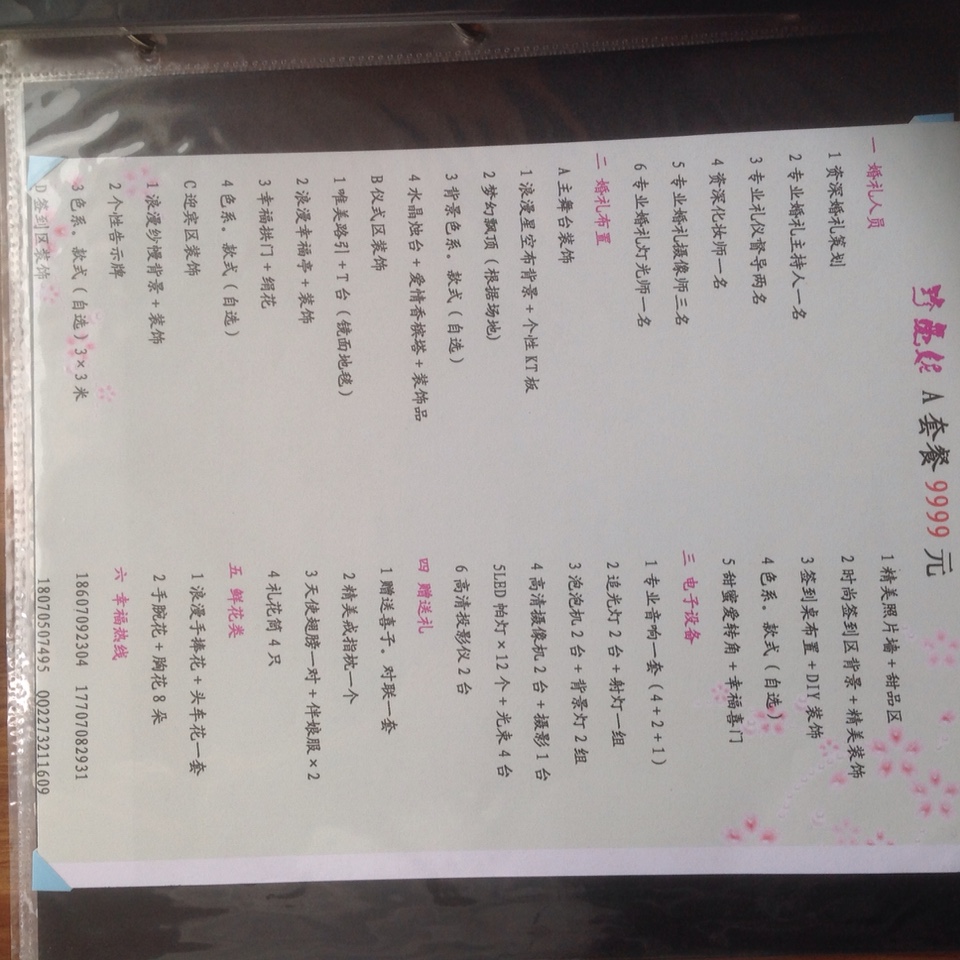 A套餐9999元
一 婚礼人员
1 资深婚礼策划
2 专业婚礼主持人一名
3 专业礼仪督导两名
4 资深化妆师一名
5 专业婚礼摄像师三名
6 专业婚礼灯光师一名
二 婚礼布置
A 主舞台装饰
1 浪漫星空布背景+个性KT板
2 梦幻飘顶(根据场地)
3 背景色系。款式(自选)
4 水晶烛台+爱情香槟塔+装饰品
B 仪式区装饰
1 唯美路引+T台(镜面地毯)
2 浪漫幸福亭+装饰
3 幸福拱门+绢花
4 色系。款式(自选)
C 迎宾区装饰
1 浪漫纱慢背景+装饰
2 个性告示牌
3 色系。款式(自选)3×3米
D 签到区装饰
1 精美照片墙+甜品区
2 时尚签到区背景+精美装饰
3 签到桌布置+DIY装饰
4 色系。款式(自选)
5 甜蜜爱转角+幸福喜门
三 电子设备
1 专业音响一套(4+2+1)
2 追光灯2台+射灯一组
3 泡泡机2台+背景灯2组
4 高清摄像机2台+摄影1台
5LED帕灯×12个+光束4台
6 高清投影仪2台
四 赠送礼
1 赠送喜子。对联一套
2 精美戒指枕一个
3 天使翅膀一对+伴娘服×2
4 礼花筒4只
五 鲜花类
1 浪漫手捧花+头车花一套
2 手腕花+胸花8朵
六 幸福热线
18607092304 17707082931
18070507495 002273211609